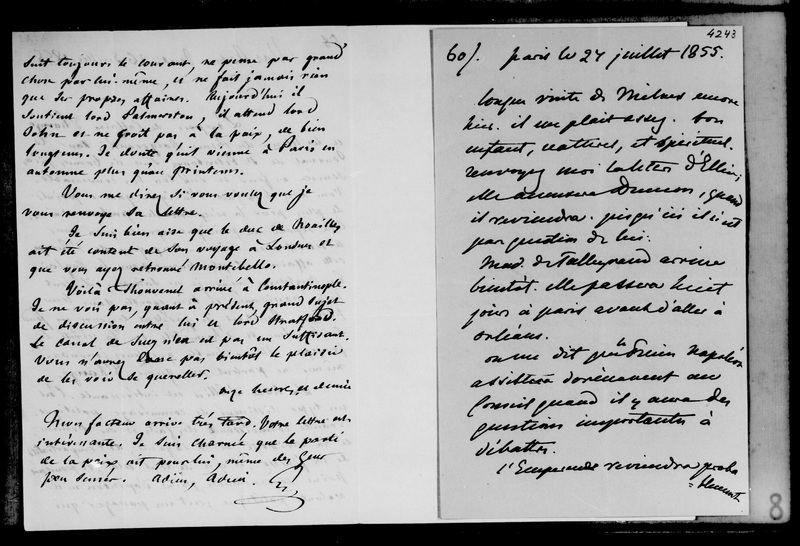 suit toujours le courant, ne pense pas grand'
chose par lui-même, et ne fait jamais rien
que ses propres affaires. Aujourd'hui il
soutient lord Palmerston, il attend lord
John et ne croit pas à la paix, de bien
longtems. Je doute qu'il vienne à Paris en
automne plus qu'au printems.
Vous me direz si vous voulez que je
vous renvoye sa lettre.
Je suis bien aise que le duc de Noailles
ait été content de son voyage à Londres et
que vous ayez retrouvé Montebello.
Voilà Thouvenel arrivé à Constantinople.
Je ne vois pas, quant à présent, grand sujet
de discussion entre lui et lord Stratford.
Le canal de Suez n'en est pas un suffisant.
Vous n'aurez pas bientôt le plaisir
de les voir se quereller.
onze heures et demie
Mon facteur arrive très tard. Votre lettre est
intéressante. Je suis charmé que le parti
de la paix ait pour lui, même des gens
peu sensés. Adieu, adieu. G
4243
60/. Paris le 24 juillet 1855.
longue visite de Milnes encore
hier. il me plait assez. bon
enfant, naturel, et spirituel.
renvoyez moi la lettre d'Ellice,
elle amusera Dumon, quand
il reviendra. jusqu'ici il n'est
pas question de lui.
Mad. de Talleyrand arrive
bientôt. elle passera huit
jours à paris avant d'aller à
Orléans.
on me dit que le Prince Napoléon
assistera dorénavant au
Conseil quand il y aura des
questions importantes à
débattre.
l'Empereur reviendra proba
=blement
8